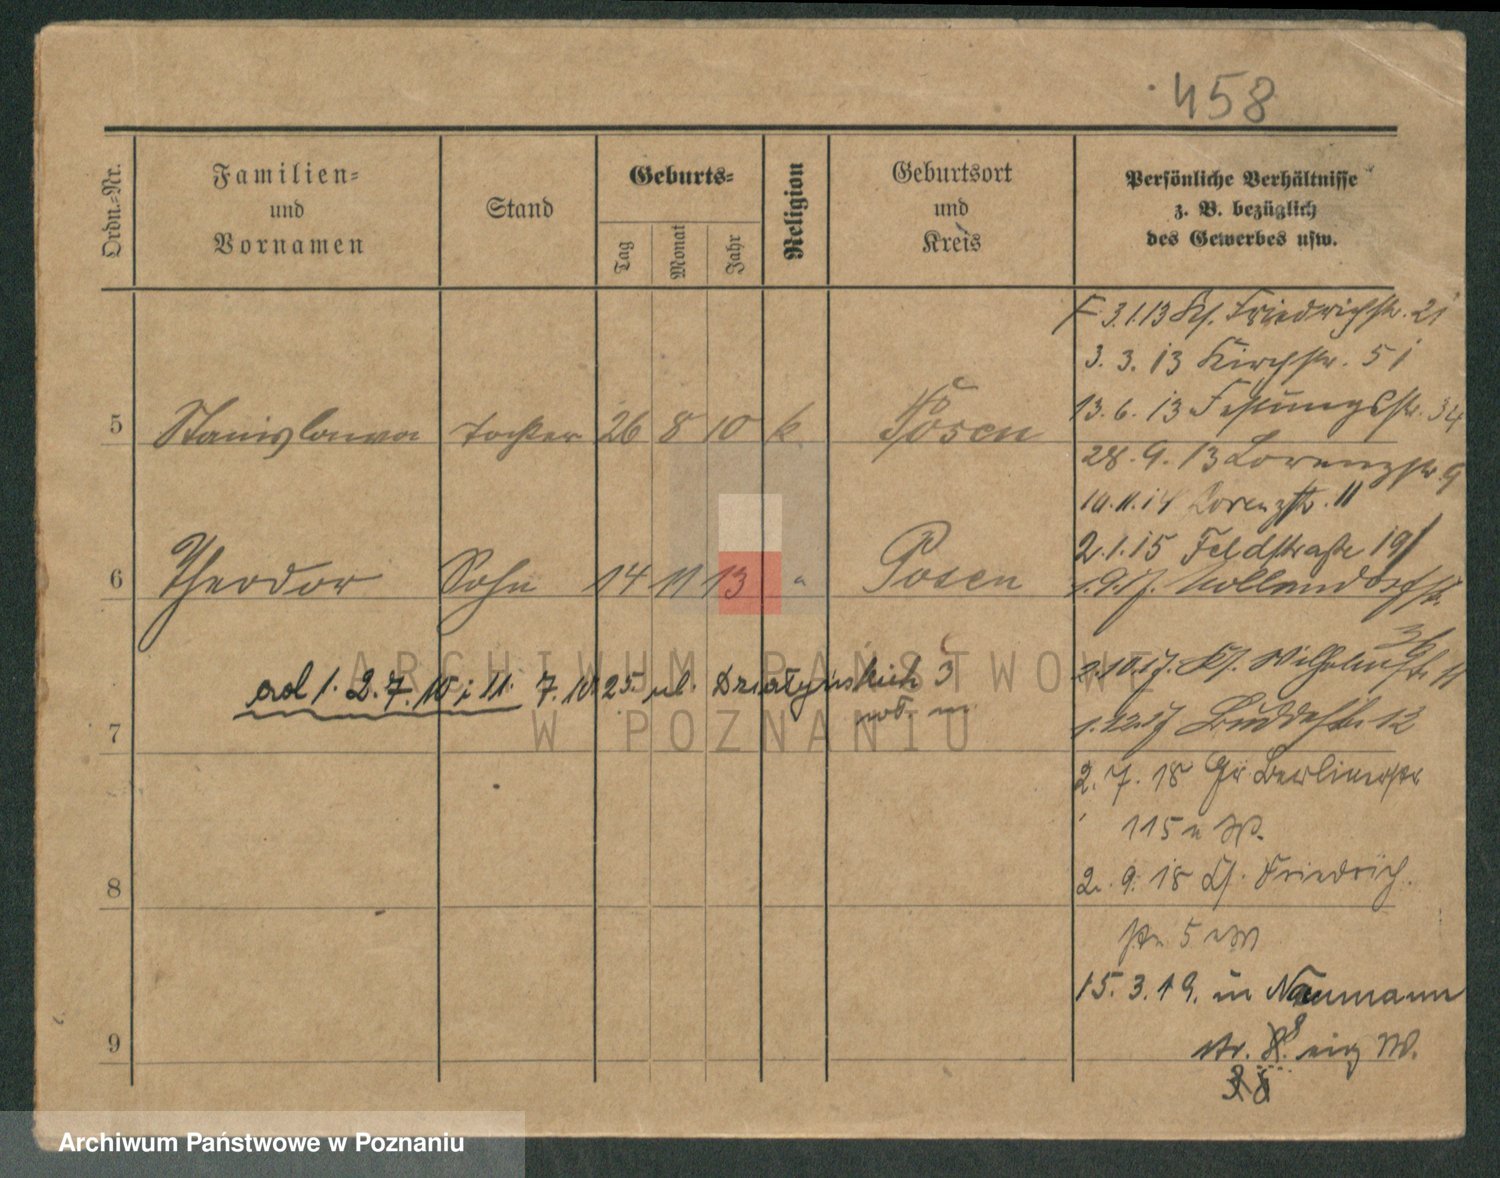 458
Ordn.-Nr.
Familien-
und
Vornamen
Stand
Geburts-
Tag
Monat
Jahr
Religion
Geburtsort
und
Kreis
Persönliche Verhältnisse
z. B. bezüglich
des Gewerbes usw.
3.1.13 Kl. Friedrichstr. 21
3. 3. 13 Kirchstr. 51
13. 6. 13 Festungsstr. 34
5 Stanislawa Tochter 26 8 10 k. Posen
28. 9. 13 Lorenzstr 9
10.11.14 Lorenzstr. 11
2.1.15 Feldstraße 19
6 Theodor Sohn 14 11 13 " Posen
1.9.17. Nollendorfstr.
36
2.10.17. Kl. Wilhelmstr. 11
ad 1. 2. 7. 10 i 11. 7.10.25. ul. Działyńskich 3
7
1.12.17 Buddestr. 12
2. 7. 18 Gr Berlinerstr
115 n W.
8
2. 9. 18 Kl. Friedrich.
str 5 n W
15. 3. 19. in Naumann
9
str. 8. eig W.
ARCHIWUM PAŃSTWOWE
W POZNANIU
Archiwum Państwowe w Poznaniu